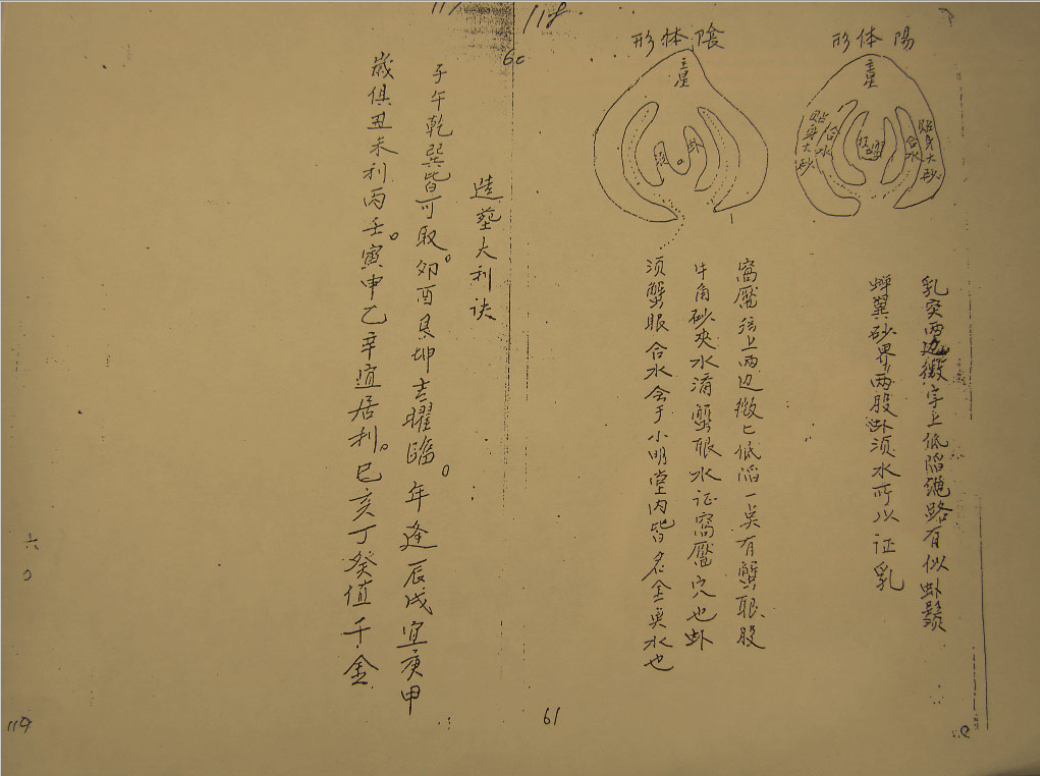 陽体形
主星
貼身大砂
合水
合水
貼身大砂
乳突两边微字上低陷绳路有似虾鬚
蟬翼砂界两股虾须水所以证乳
陰体形
主星
窩靨弦上两边微匕低陷一点有蟹眼股
牛角砂夾水滴蟹眼水证窩靨穴也虾
须蟹眼合水会于小明堂内皆名金魚水也
61
118
60
造葬大利诀
子午乾巽皆可取。卯酉艮坤吉曜臨。年逢辰戌宜庚甲
歲俱丑未利丙壬。寅申乙辛誼居利。巳亥丁癸值千金
六〇
119